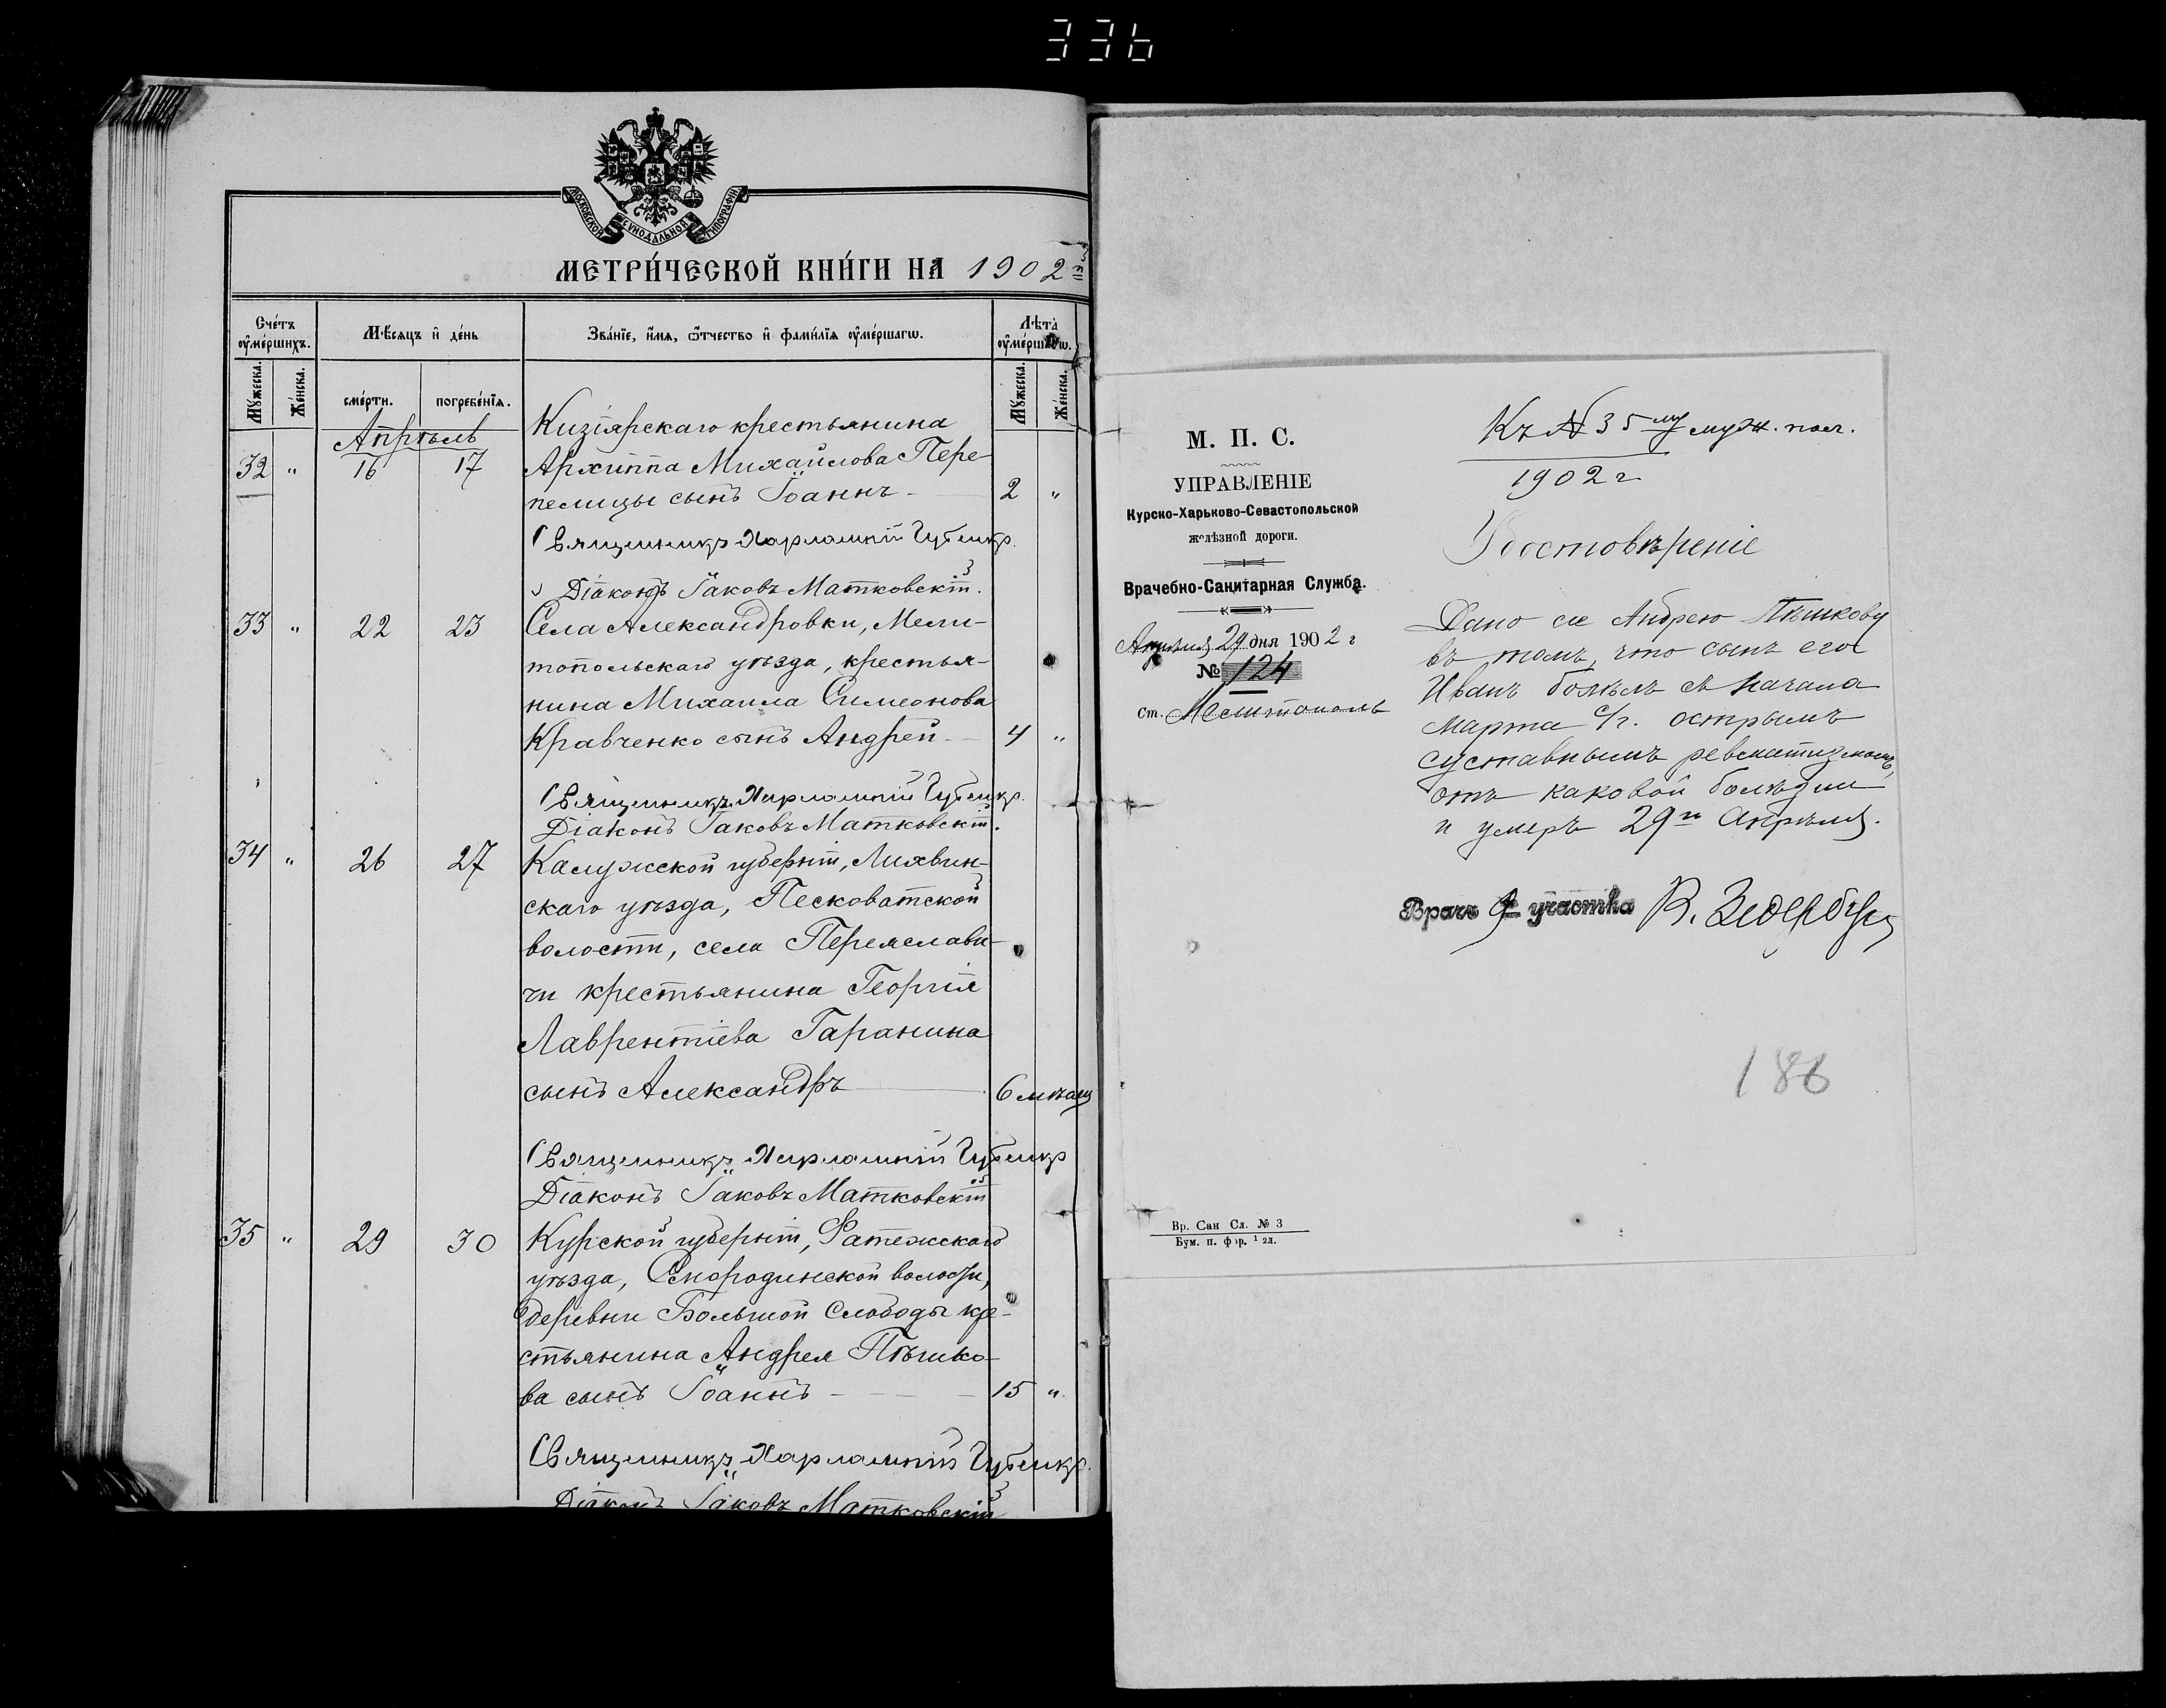 336
МОСКОВСКОЙ СѴНОДАЛЬНОЙ ТИПОГРАФІИ
МЕТРИ́ЧЕСКОЙ КНИ́ГИ НА 1902 й
Сче́тъ оу҆ме́ршихъ.
Мѣ́сяцъ и҆ де́нь
Зва́нїе, и҆́мя, ѻ҆́тчество и҆ фами́лїя оу҆ме́ршагѡ.
Лѣта̀ оу҆ме́ршагѡ.
Му́жеска.
Же́нска.
сме́рти.
погребе́нїя.
Му́жеска.
Же́нска.
Апрѣль
Кизіярскаго крестьянина
32 " 16 17 Архиппа Михайлова Пере-
пелицы сынъ Іоаннъ - 2 "
Священникъ Харлампій
Діаконъ Іаковъ Матковскій.
33 " 22 23 Села Александровки, Мели-
топольскаго уѣзда, крестья-
нина Михаила Симеонова
Кравченко сынъ Андрей - 4 "
Священникъ Харлампій
Діаконъ Іаковъ Матковскій.
34 " 26 27 Калужской губерніи, Лихвин-
скаго уѣзда, Песковатской
волости, села Переяслави-
чи крестьянина Георгія
Лаврентіева Гаранина
сынъ Александръ - 6 мѣсяц
Священникъ Харлампій
Діаконъ Іаковъ Матковскій
35 " 29 30 Курской губерніи, Фатежскаго
уѣзда, Смородинской волости,
деревни Большой Слободы кре-
стьянина Андрея Пѣшко-
ва сынъ Іоаннъ - 15 "
Священникъ Харлампій
Діаконъ Іаковъ Матковскій
М. П. С.
УПРАВЛЕНІЕ
Курско-Харьково-Севастопольской
желѣзной дороги.
Врачебно-Санитарная Служба.
Апрѣля 29 дня 1902 г
№ 124
ст. Мелитополь
Къ № 35му муж. пол.
1902 г
Удостовѣреніе
Дано сіе Андрею Пѣшкову
въ томъ, что сынъ его
Иванъ болѣлъ съ начала
марта с/г. острымъ
суставнымъ ревматизмомъ,
отъ каковой болѣзни
и умеръ 29го Апрѣля.
Врачъ 9го участка В. Зедерберг
186
Вр. Сан Сл. № 3
Бум. п. фор. 1/2 л.